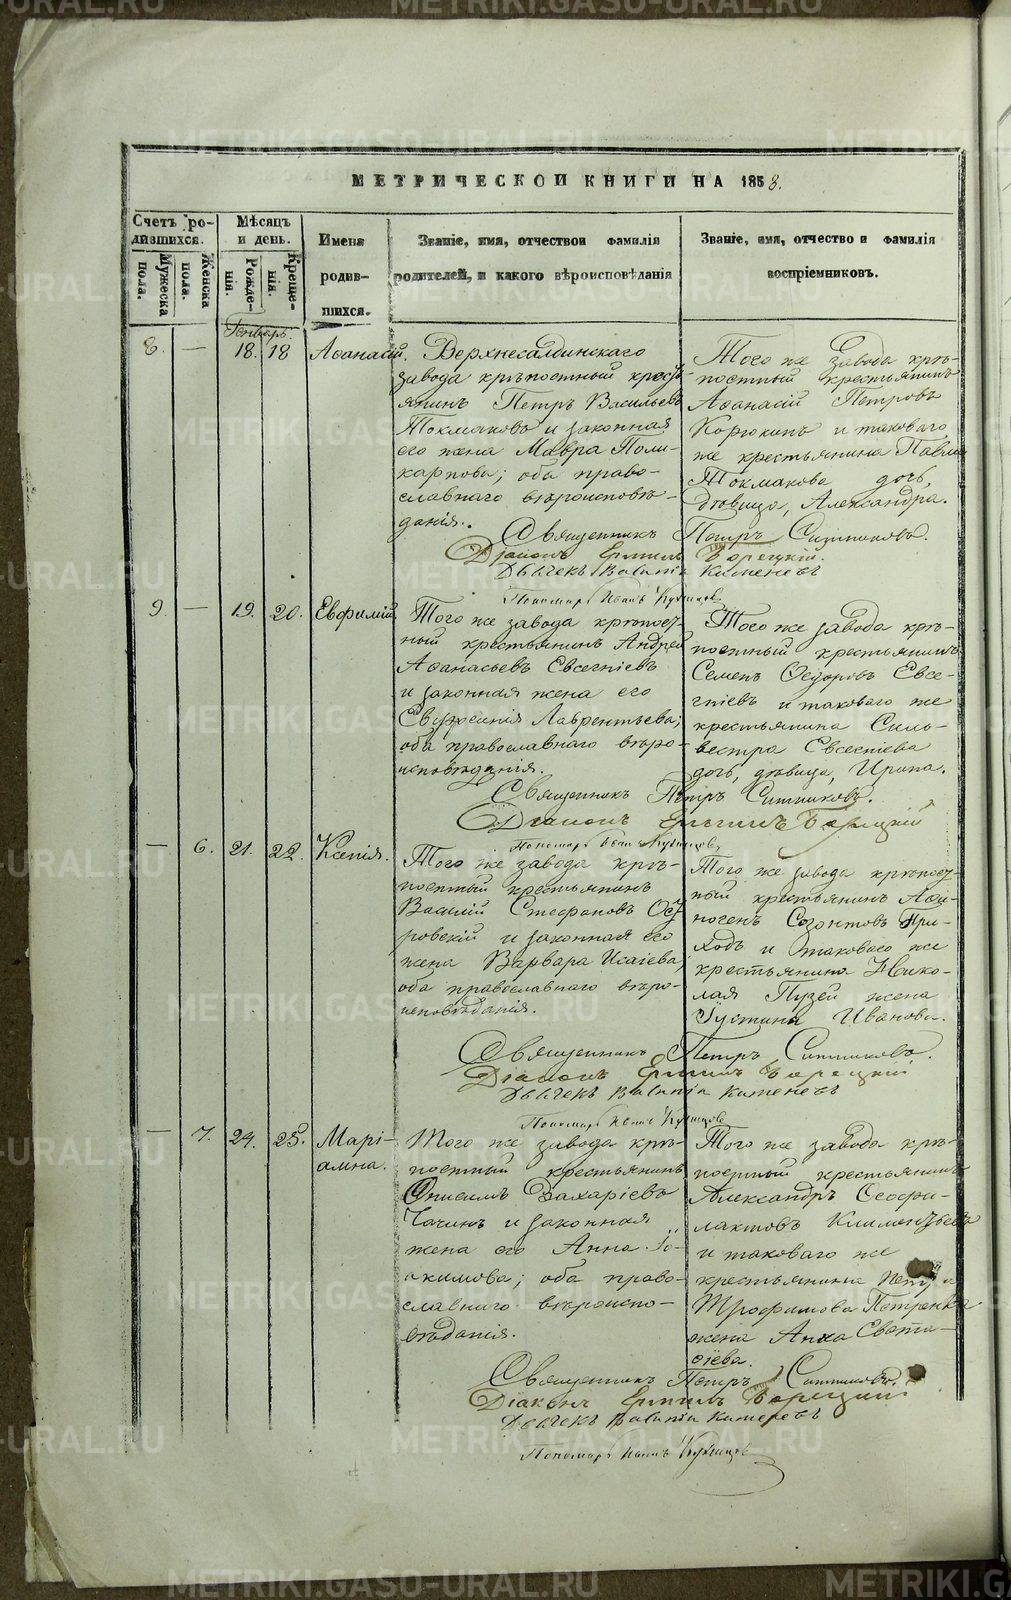 МЕТРИЧЕСКОЙ КНИГИ НА 1858.
Счетъ ро-
дившихся.
Мужеска
пола.
Женска
пола.
Мѣсяцъ
и день.
Рожде-
нія.
Креще-
нія.
Имена
родив-
шихся.
Званіе, имя, отчество и фамилія
родителей, и какого вѣроисповѣданія
Званіе, имя, отчество и фамилія
воспріемниковъ.
Генварь.
8. — 18. 18 Аѳанасій.
Верхнесалдинскаго
завода крѣпостный кресть-
янинъ Петръ Васильевъ
Токмаковъ и законная
его жена Мавра Поли-
карпова; оба право-
славнаго вѣроисповѣ-
данія.
Того же завода крѣ-
постный крестьянинъ
Аѳанасій Петровъ
Корюкинъ и таковаго
же крестьянина Павла
Токмакова дочь,
дѣвица, Александра.
Священникъ Петръ Ситниковъ.
Діаконъ Ермилъ Борецкій.
Дьячекъ
Пономарь Иванъ Кузнецовъ
9. — 19. 20. Евфимій.
Того же завода крѣпост-
ный крестьянинъ Андрей
Аѳанасьевъ Евсегніевъ
и законная жена его
Евгенія Лаврентьева;
оба православнаго вѣро-
исповѣданія.
Того же завода крѣ-
постный крестьянинъ
Семенъ Ѳедоровъ Евсе-
гніевъ и таковаго же
крестьянина Силь-
вестра Евсегніева
дочь, дѣвица, Ирина.
Священникъ Петръ Ситниковъ.
Діаконъ Ермилъ Борецкій
Пономарь Иванъ Кузнецовъ
— 6. 21. 22. Ксенія.
Того же завода крѣ-
постный крестьянинъ
Василій Стефановъ
и законная его
жена Варвара Исаіева,
оба православнаго вѣро-
исповѣданія.
Того же завода крѣпост-
ный крестьянинъ Аѳи-
ногенъ Созонтовъ При-
ходъ и таковаго же
крестьянина Нико-
лая Пузей жена
Іустина Иванова.
Священникъ Петръ Ситниковъ.
Діаконъ Ермилъ Борецкій
Дьячекъ
Пономарь Иванъ Кузнецовъ
— 7. 24. 25. Марі-
амна.
Того же завода крѣ-
постный крестьянинъ
Онисимъ Захаріевъ
и законная
жена его Анна Іо-
акимова; оба право-
славнаго вѣроиспо-
вѣданія.
Того же завода крѣ-
постный крестьянинъ
Александръ Ѳеофи-
лактовъ Климентьевъ
и таковаго же
крестьянина Петра
Трофимова
жена Анна Евста-
фіева.
Священникъ Петръ Ситниковъ.
Діаконъ Ермилъ Борецкій
Дьячекъ
Пономарь Иванъ Кузнецовъ
METRIKI.GASO-URAL.RU